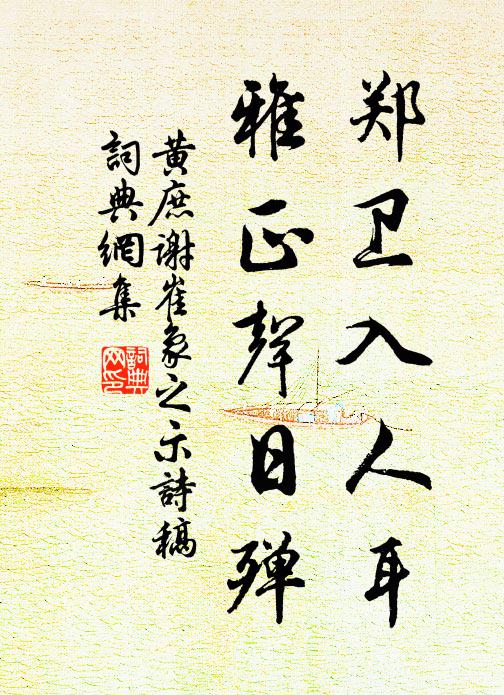 郑卫入人耳
雅正聲日殫
黄庶谢崔象之示詩稿
詞典網集
詞典网印